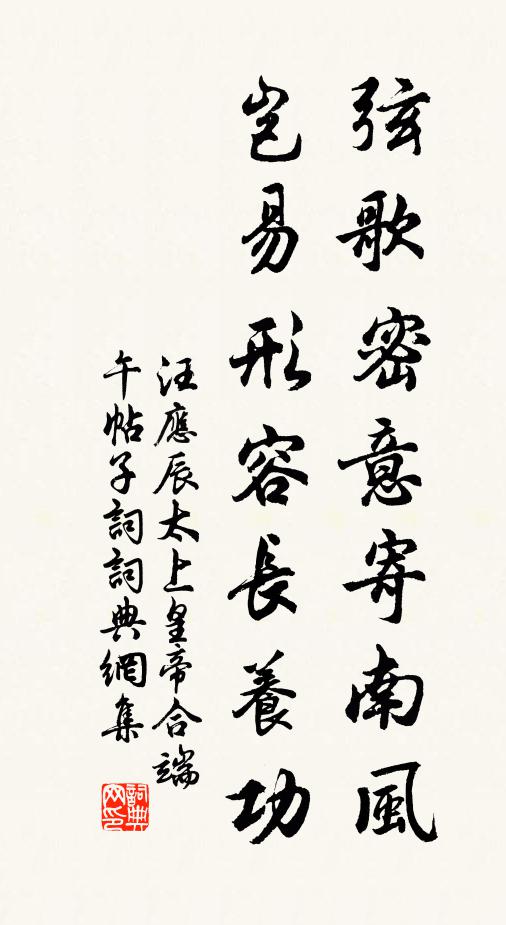 弦歌密意寄南風
豈易形容長養功
汪應辰太上皇帝合端
午帖子詞詞典網集
詞典网印